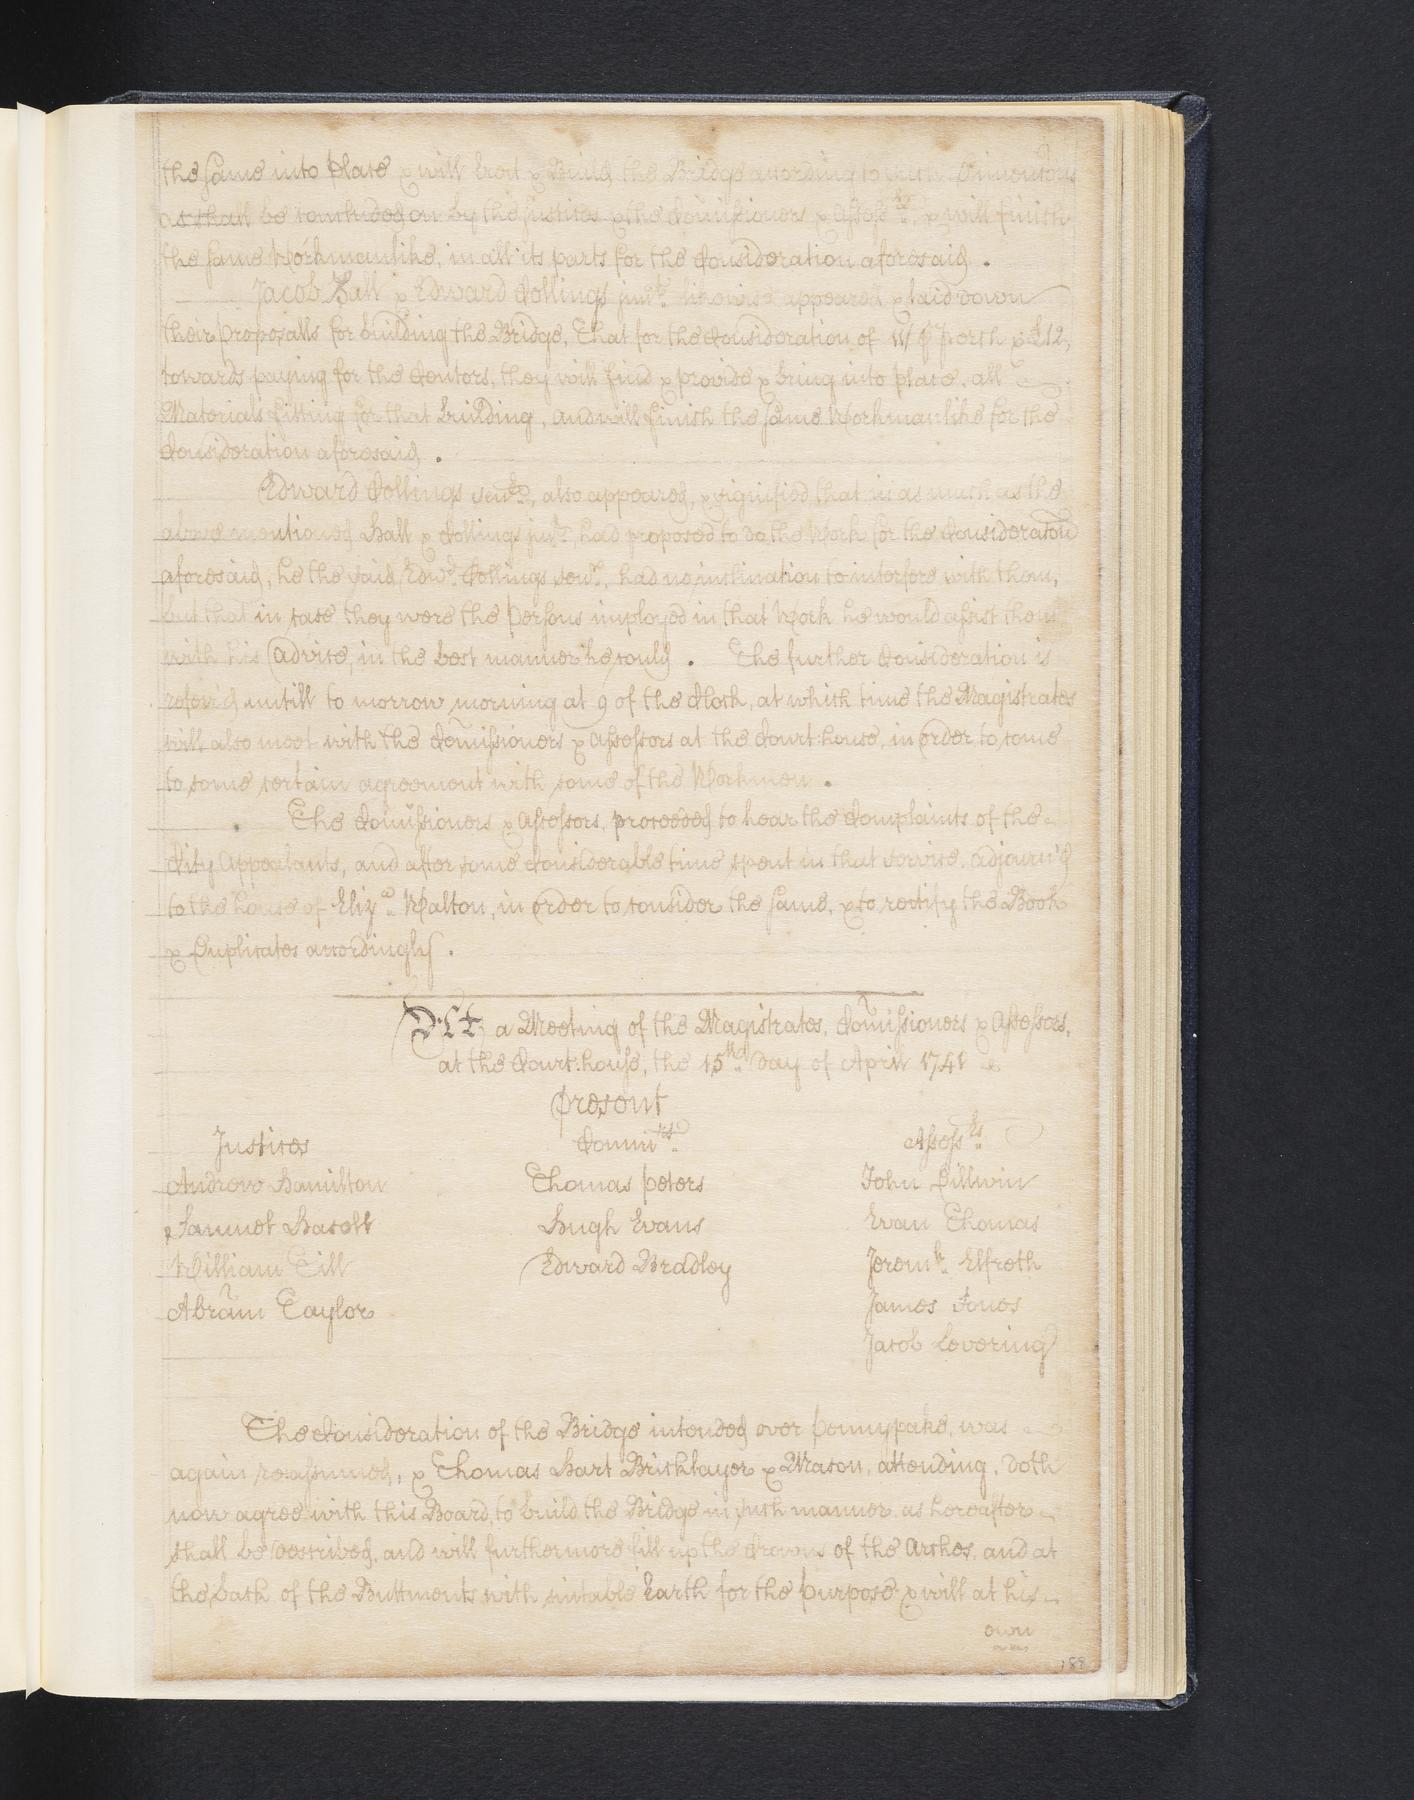 the same into place & will Erect & Build the Bridge according to such Dimentions
as shall be concluded on by the Justices & the Com̃issioners & Assess.rs & will finish
the same Workmanlike, in all its parts for the Consideration aforesaid .
Jacob Hall & Edward Collings jun.r likewise appeared & laid down
their proposalls for building the Bridge, That for the Consideration of 11/ ⅌ Perch & £12,
towards paying for the Centors, they will find & provide & bring into place, all
Materials fitting for that building, and will finish the same Workmanlike for the
Consideration aforesaid .
Edward Collings sen.r, also appeared, & signified that in as much as the
above mentioned Hall & Collings jun.r, had proposed to do the Work for the Consideratõn
aforesaid, he the said Edw.d Collings sen.r, had no inclination to interfere with them,
but that in case they were the Persons imployed in that Work he would assist them
with his advice, in the best manner he could . The further Consideration is
refer'd untill to morrow morning at 9 of the Clock, at which time the Magistrates
will also meet with the Com̃issioners & Assessors at the Court:house, in order to come
to some certain agreement with some of the Workmen .
The Com̃issioners & Assessors, proceeded to hear the Complaints of the
City Appealants, and after some Considerable time spent in that service, adjourn'd
to the house of Eliz.a Walton, in order to consider the same, & to rectify the Book
& Duplicates accordingly .
At a Meeting of the Magistrates, Com̃issioners & Assessors,
at the Court:house, the 15.th Day of April 1741
Present
Justices Com̃i.rs Assess.rs
Andrew Hamilton Thomas Peters John Dillwin
Samuel Hasell Hugh Evans Evan Thomas
William Till Edward Bradley Jerem.h Elfreth
Abrãm Taylor James Jones
Jacob Levering
The Consideration of the Bridge intended over Pennypake, was
again reassumed, & Thomas Hart Bricklayer & Mason, attending, doth
now agree with this Board, to build the Bridge in such manner as hereafter
shall be described, and will furthermore fill up the Crowns of the Arches, and at
the back of the Buttments with suitable Earth for the purpose & will at his
own
188